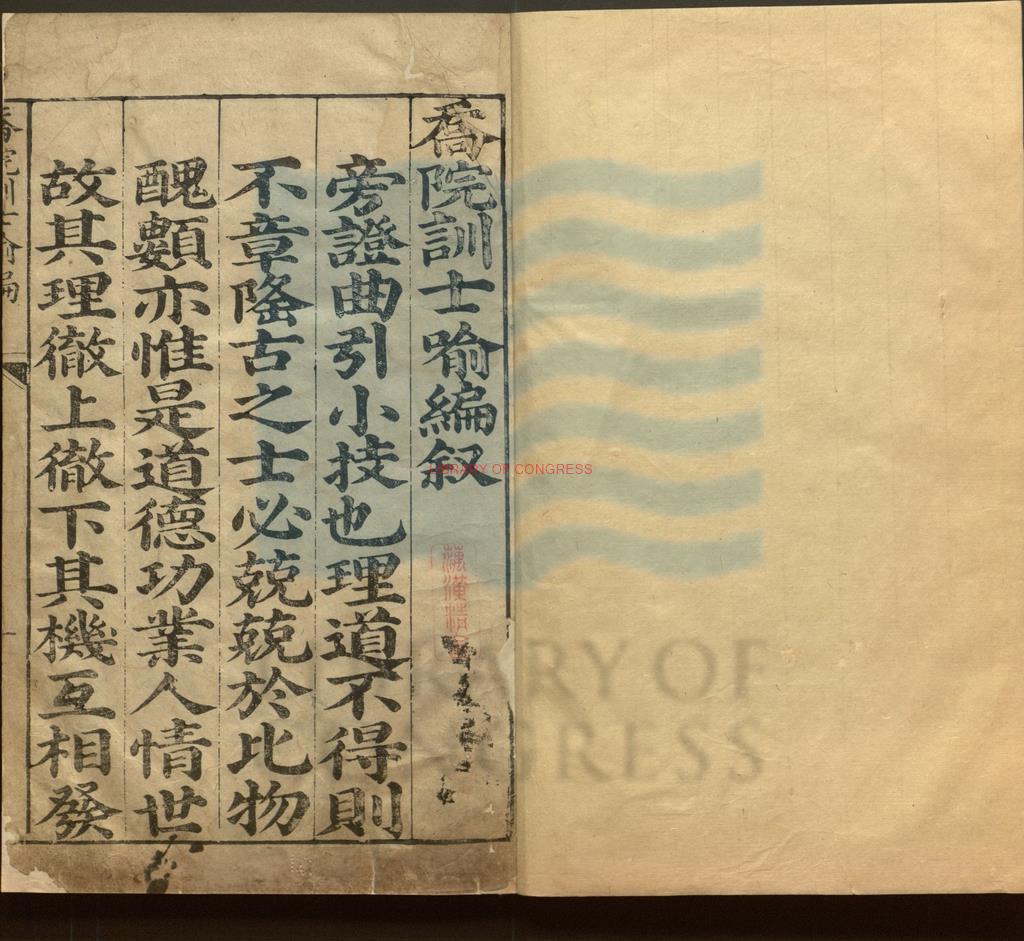 喬院訓士喻編叙
旁證曲引小技也理道不得則
不章隆古之士必兢兢於比物
醜類亦惟是道德功業人情世
故其理徹上徹下其機互相發
喬院訓士喻編
LIBRARY OF CONGRESS
LIBRARY OF
CONGRESS